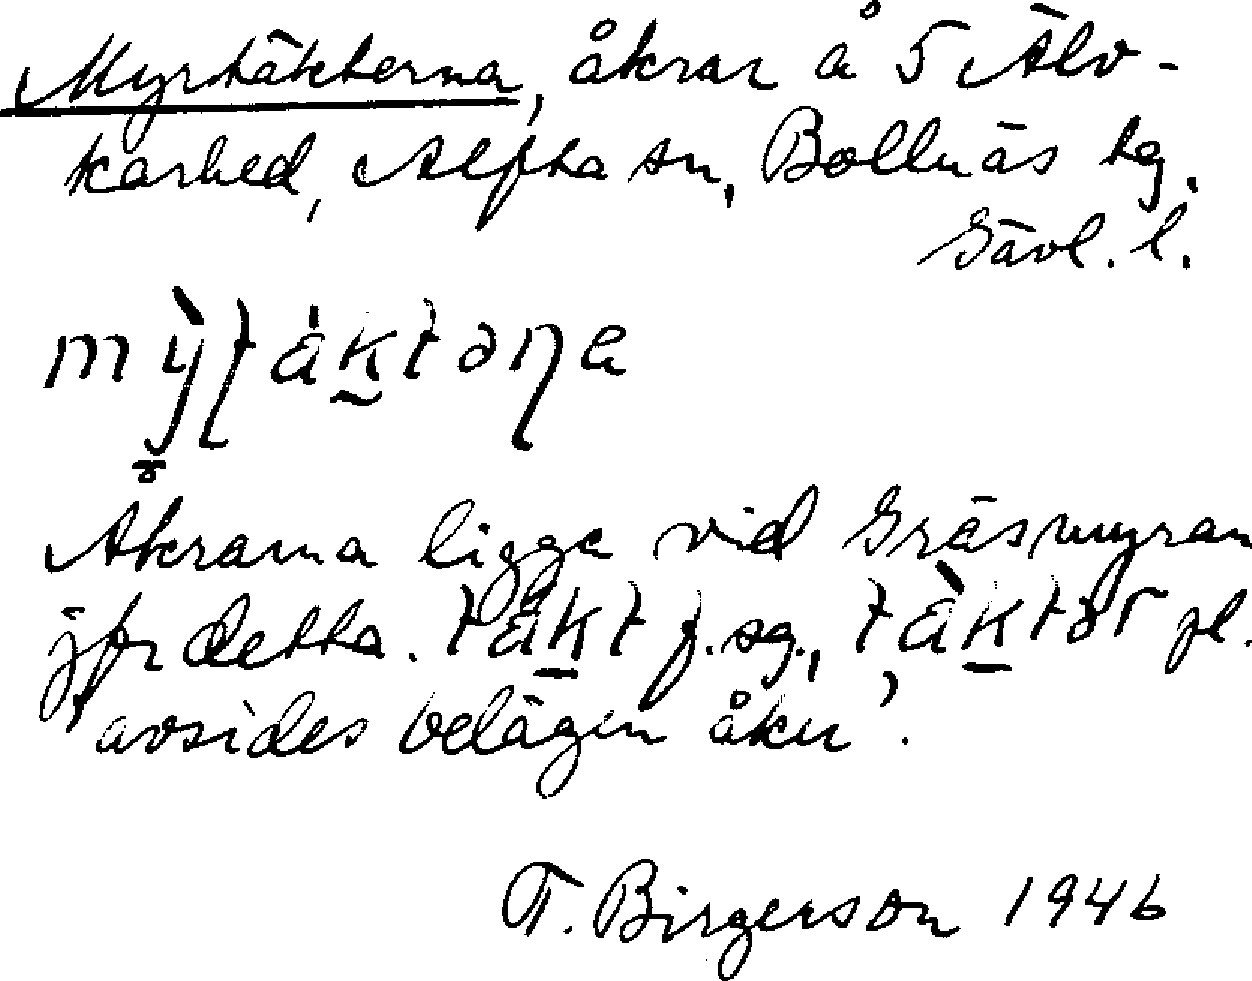 Myrtäkterna, åkrar å 5 Älv-
karhed, Alfta sn, Bollnäs tg.
Gävl. l.
Åkrarna ligga vid Gräsmyran
jfr detta. täkt f. sg., täktər pl.
'avsides belägen åker'.
T. Birgerson 1946